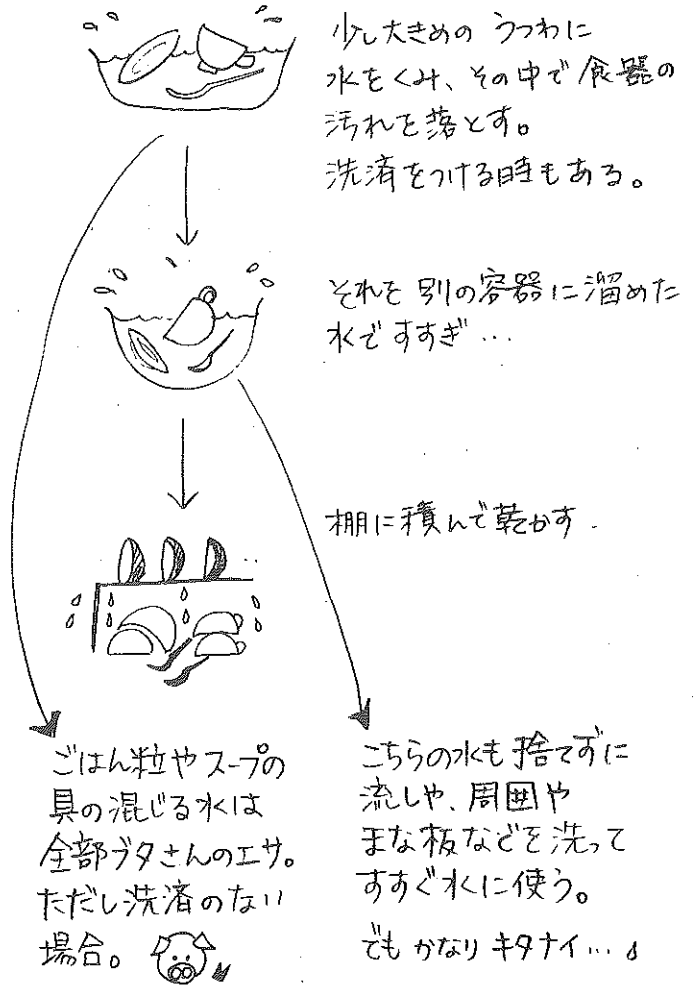 少し大きめの うつわに
水をくみ、その中で食器の
汚れを落とす。
洗済をつける時もある。
それを別の容器に溜めた
水ですすぎ…
棚に積んで乾かす.
ごはん粒やスープの
具の混じる水は
全部ブタさんのエサ。
ただし洗済のない
場合。
こちらの水も捨てずに
流しや、周囲や
まな板などを洗って
すすぐ水に使う。
でも かなり キタナイ…